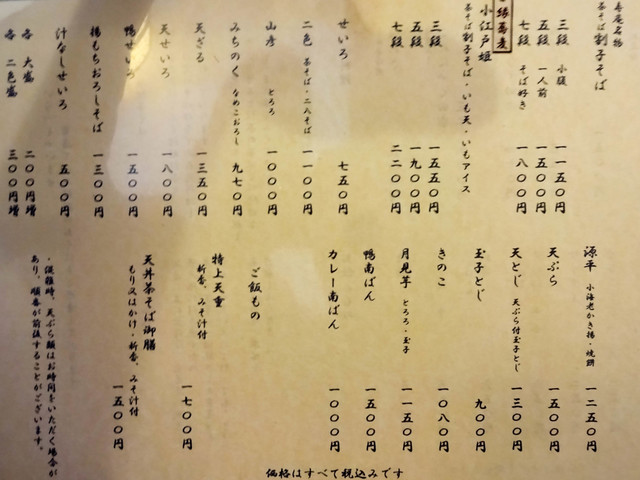 寿庵名物
茶そば割子そば
三段 小腹 一一五〇円
五段 一人前 一五〇〇円
七段 そば好き 一八〇〇円
縁蕎麦
小江戸姫
茶そば割子そば・いも天・いもアイス
三段 一五五〇円
五段 一九〇〇円
七段 二二〇〇円
せいろ 七五〇円
二色 茶そば・二八そば 一一〇〇円
山彦 とろろ 一〇〇〇円
みちのく なめこおろし 九七〇円
天ざる 一三五〇円
天せいろ 一八〇〇円
鴨せいろ 一五〇〇円
揚もちおろしそば 一三〇〇円
汁なしせいろ 五〇〇円
各 大盛 二〇〇円増
各 二色盛 三〇〇円増
源平 小海老かき揚・焼餅 一二五〇円
天ぷら 一五〇〇円
天とじ 天ぷら付玉子とじ 一三〇〇円
玉子とじ 九〇〇円
きのこ 一〇八〇円
月見芋 とろろ・玉子 一一五〇円
鴨南ばん 一五〇〇円
カレー南ばん 一〇〇〇円
ご飯もの
特上天重
新香、みそ汁付 一七〇〇円
天丼茶そば御膳
もり又はかけ・新香、みそ汁付 一五〇〇円
・混雑時、天ぷら類はお時間をいただく場合が
あり、順番が前後することがございます。
価格はすべて税込みです